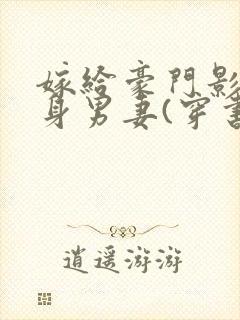 嫁给豪門影
身男妻(穿書
逍遥游游